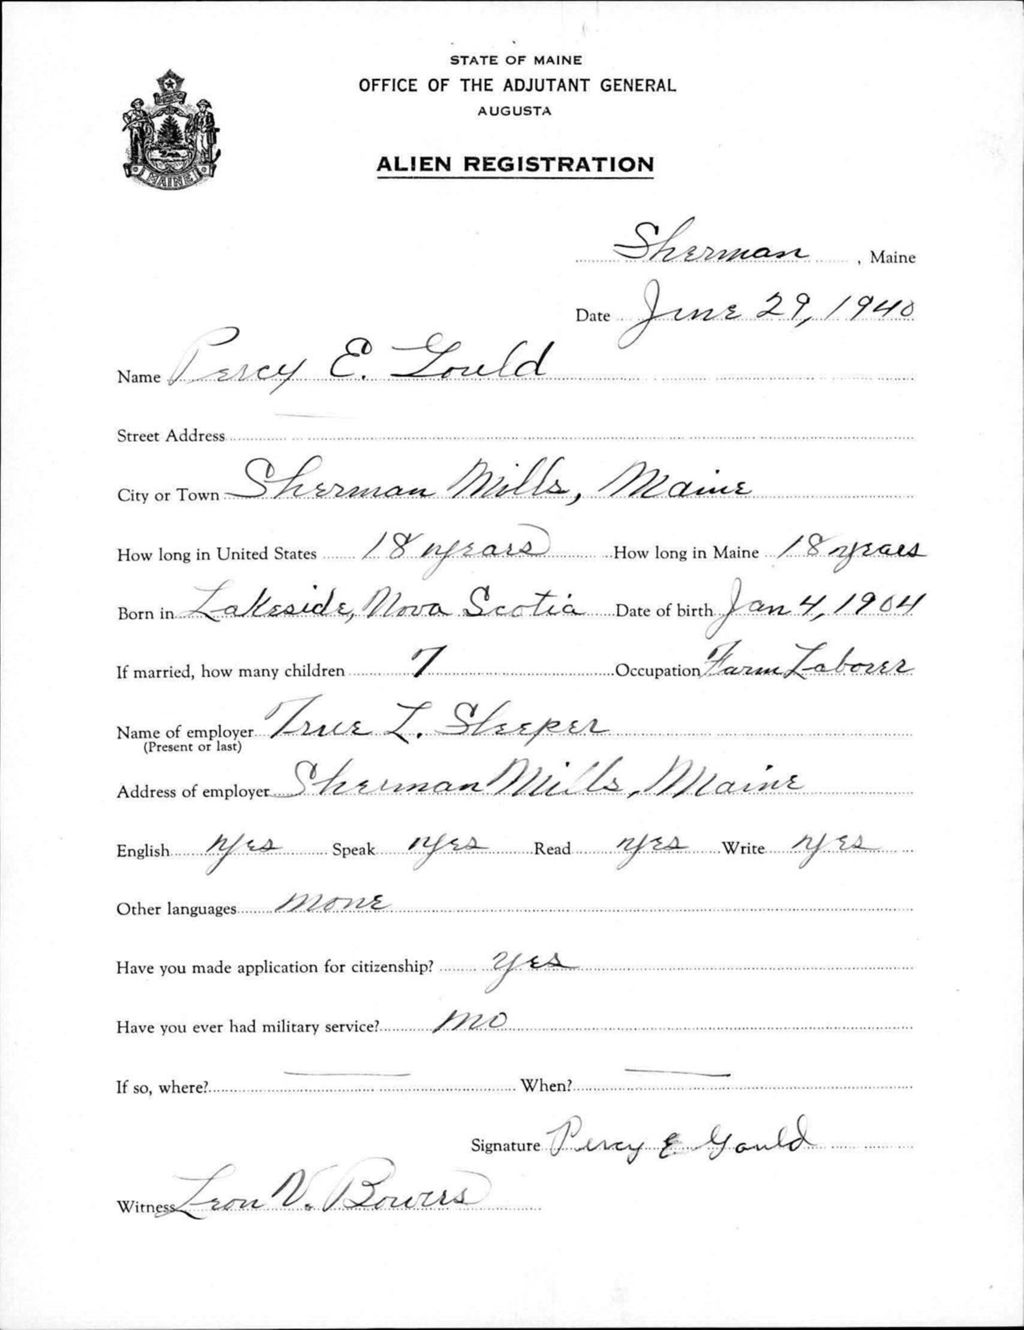 STATE OF MAINE
OFFICE OF THE ADJUTANT GENERAL
AUGUSTA
ALIEN REGISTRATION
MAINE
Sherman, Maine
Date June 29, 1940
Name Percy E. Gould
Street Address —
City or Town Sherman Mills, Maine
How long in United States 18 years How long in Maine 18 years
Born in Lakeside, Nova Scotia Date of birth Jan 4, 1904
If married, how many children 7 Occupation Farm Laborer
Name of employer True L. Sleeper
(Present or last)
Address of employer Sherman Mills, Maine
English yes Speak yes Read yes Write yes
Other languages none
Have you made application for citizenship? yes
Have you ever had military service? no
If so, where? — When? —
Signature Percy E Gould
Witness Leon V. Bowers